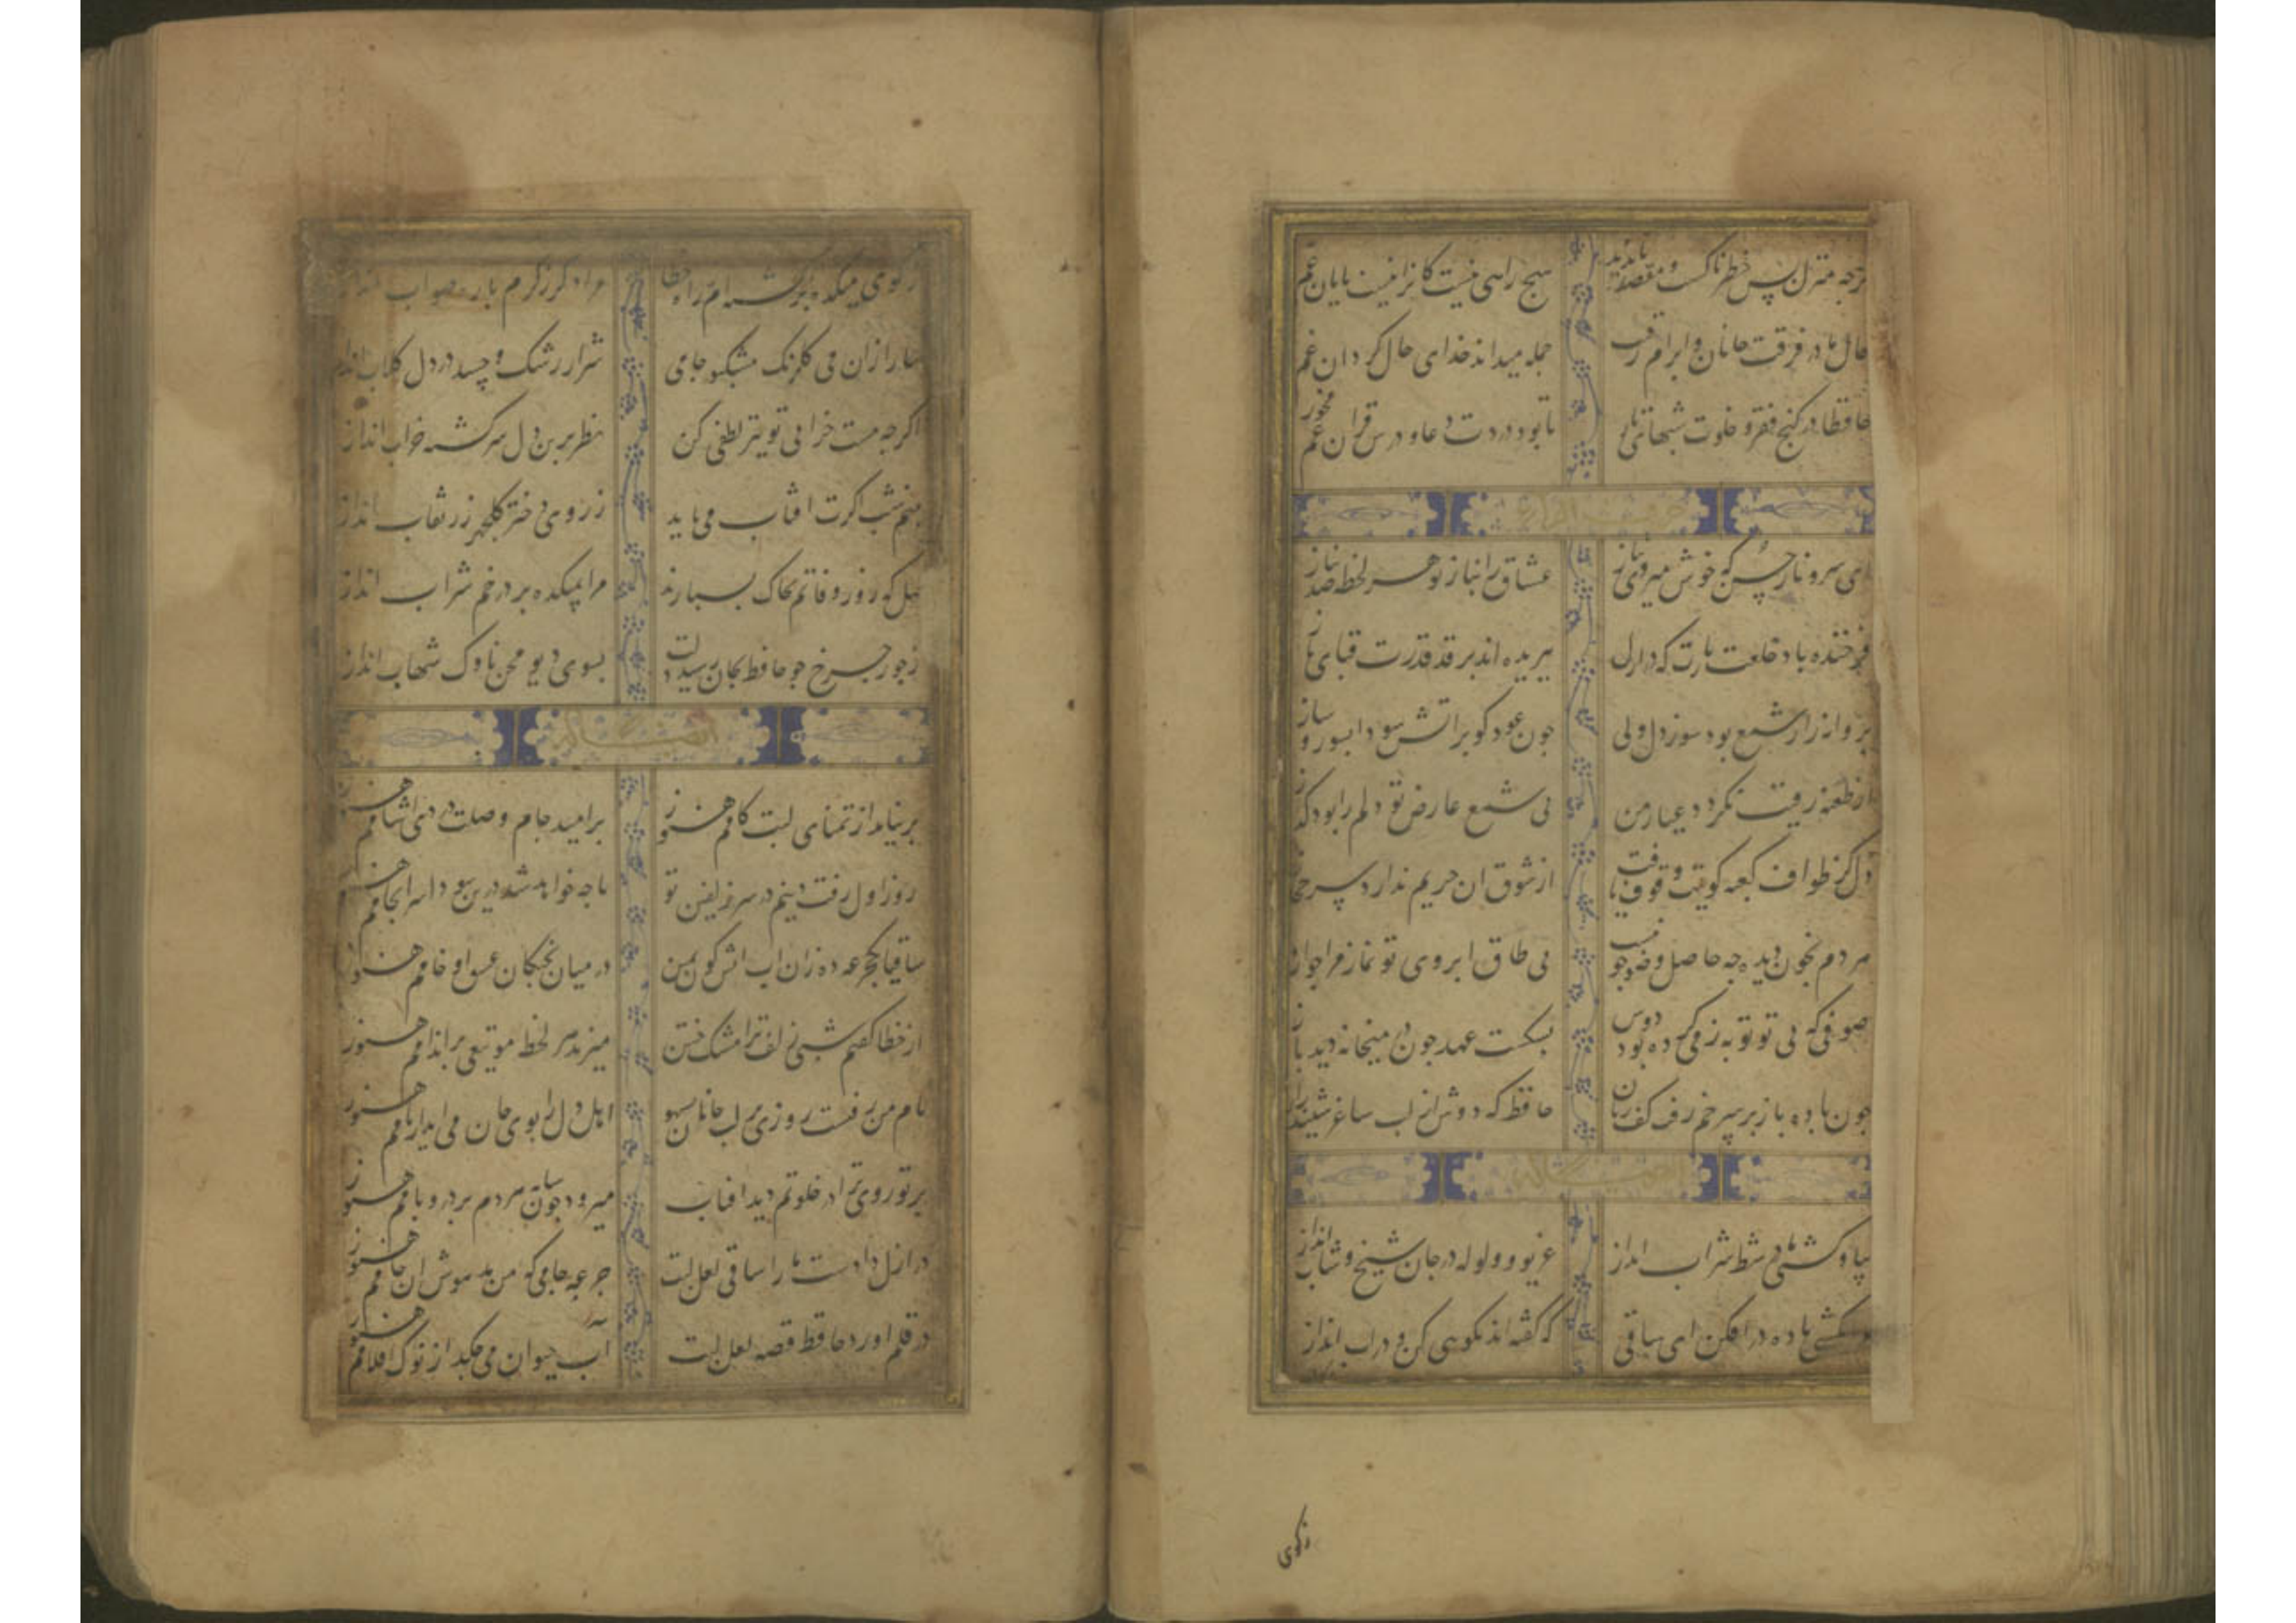 گرچه منزل بس خطرناکست و مقصد ناپدید هیچ راهی نیست کانرا نیست پایان غم
حال ما در فرقت جانان و ابرام رقیب جمله میداند خدای حال گردان غم
حافظا در کنج فقر و خلوت شبهای تار تا بود وردت دعا و درس قران غم مخور
ای سرو ناز حسن که خوش میروی بناز عشاق را بناز تو هر لحظه صد نیاز
فرخنده باد خلعت نازت که در ازل ببریده اند بر قد قدرت قبای ناز
پروانه را ز شمع بود سوز دل ولی بی شمع عارض تو دلم را بود گداز
از طعنه رقیب نکردد عیار من چون عود کو بر اتش سودا بسوز و ساز
دل کز طواف کعبه کویت وقوف یافت از شوق ان حریم ندارد سر حجاز
هر دم بخون دیده چه حاصل وضو چو نیست بی طاق ابروی تو نماز مرا جواز
صوفی که بی تو توبه ز می کرده بود دوش بشکست عهد چون در میخانه دید باز
چون باده باز بر سر خم رفت کف زنان حافظ که دوش از لب ساغر شنید راز
العشاله
بیا و کشتی ما در شط شراب انداز غریو و ولوله در جان شیخ و شاب انداز
مرا بکشتی باده در افکن ای ساقی که گفته اند نکویی کن و در اب انداز
زکوی
زکوی میکده برگشته ام ز راه خطا مرا دگر ز کرم با ره صواب انداز
بیار ازان می گلرنگ مشکبو جامی شرار رشک و حسد در دل گلاب انداز
اگرچه مست خرابی تو نیز لطفی کن نظر برین دل سرگشته خراب انداز
بنیم شب اگرت افتاب می باید ز روی دختر گلچهر رز نقاب انداز
مهل که روز وفاتم بخاک بسپارند مرا بمیکده بر در خم شراب انداز
ز جور چرخ چو حافظ بجان رسید دلت بسوی دیو محن ناوک شهاب انداز
بر نیامد از تمنای لبت کامم هنوز بر امید جام وصلت دردی اشامم هنوز
روز اول رفت دینم در سر زلفین تو تا چه خواهد شد درین سودا سرانجامم هنوز
ساقیا یکجرعه ده زان اب اتش گون بمن در میان پختگان عشق او خامم هنوز
از خطا گفتم شبی زلف ترا مشک ختن میزند هر لحظه مویت تیغی بر اندامم هنوز
نام من رفتست روزی بر لب جانان بسهو اهل دل را بوی جان می اید از نامم هنوز
پرتو روی ترا در خلوتم دید افتاب میرود چون سایه هر دم بر در و بامم هنوز
در ازل دادست ما را ساقی لعل لبت جرعه جامی که من مدهوش ان جامم هنوز
در قلم اورد حافظ قصه لعل لبت آب حیوان می چکد از نوک اقلامم هنوز